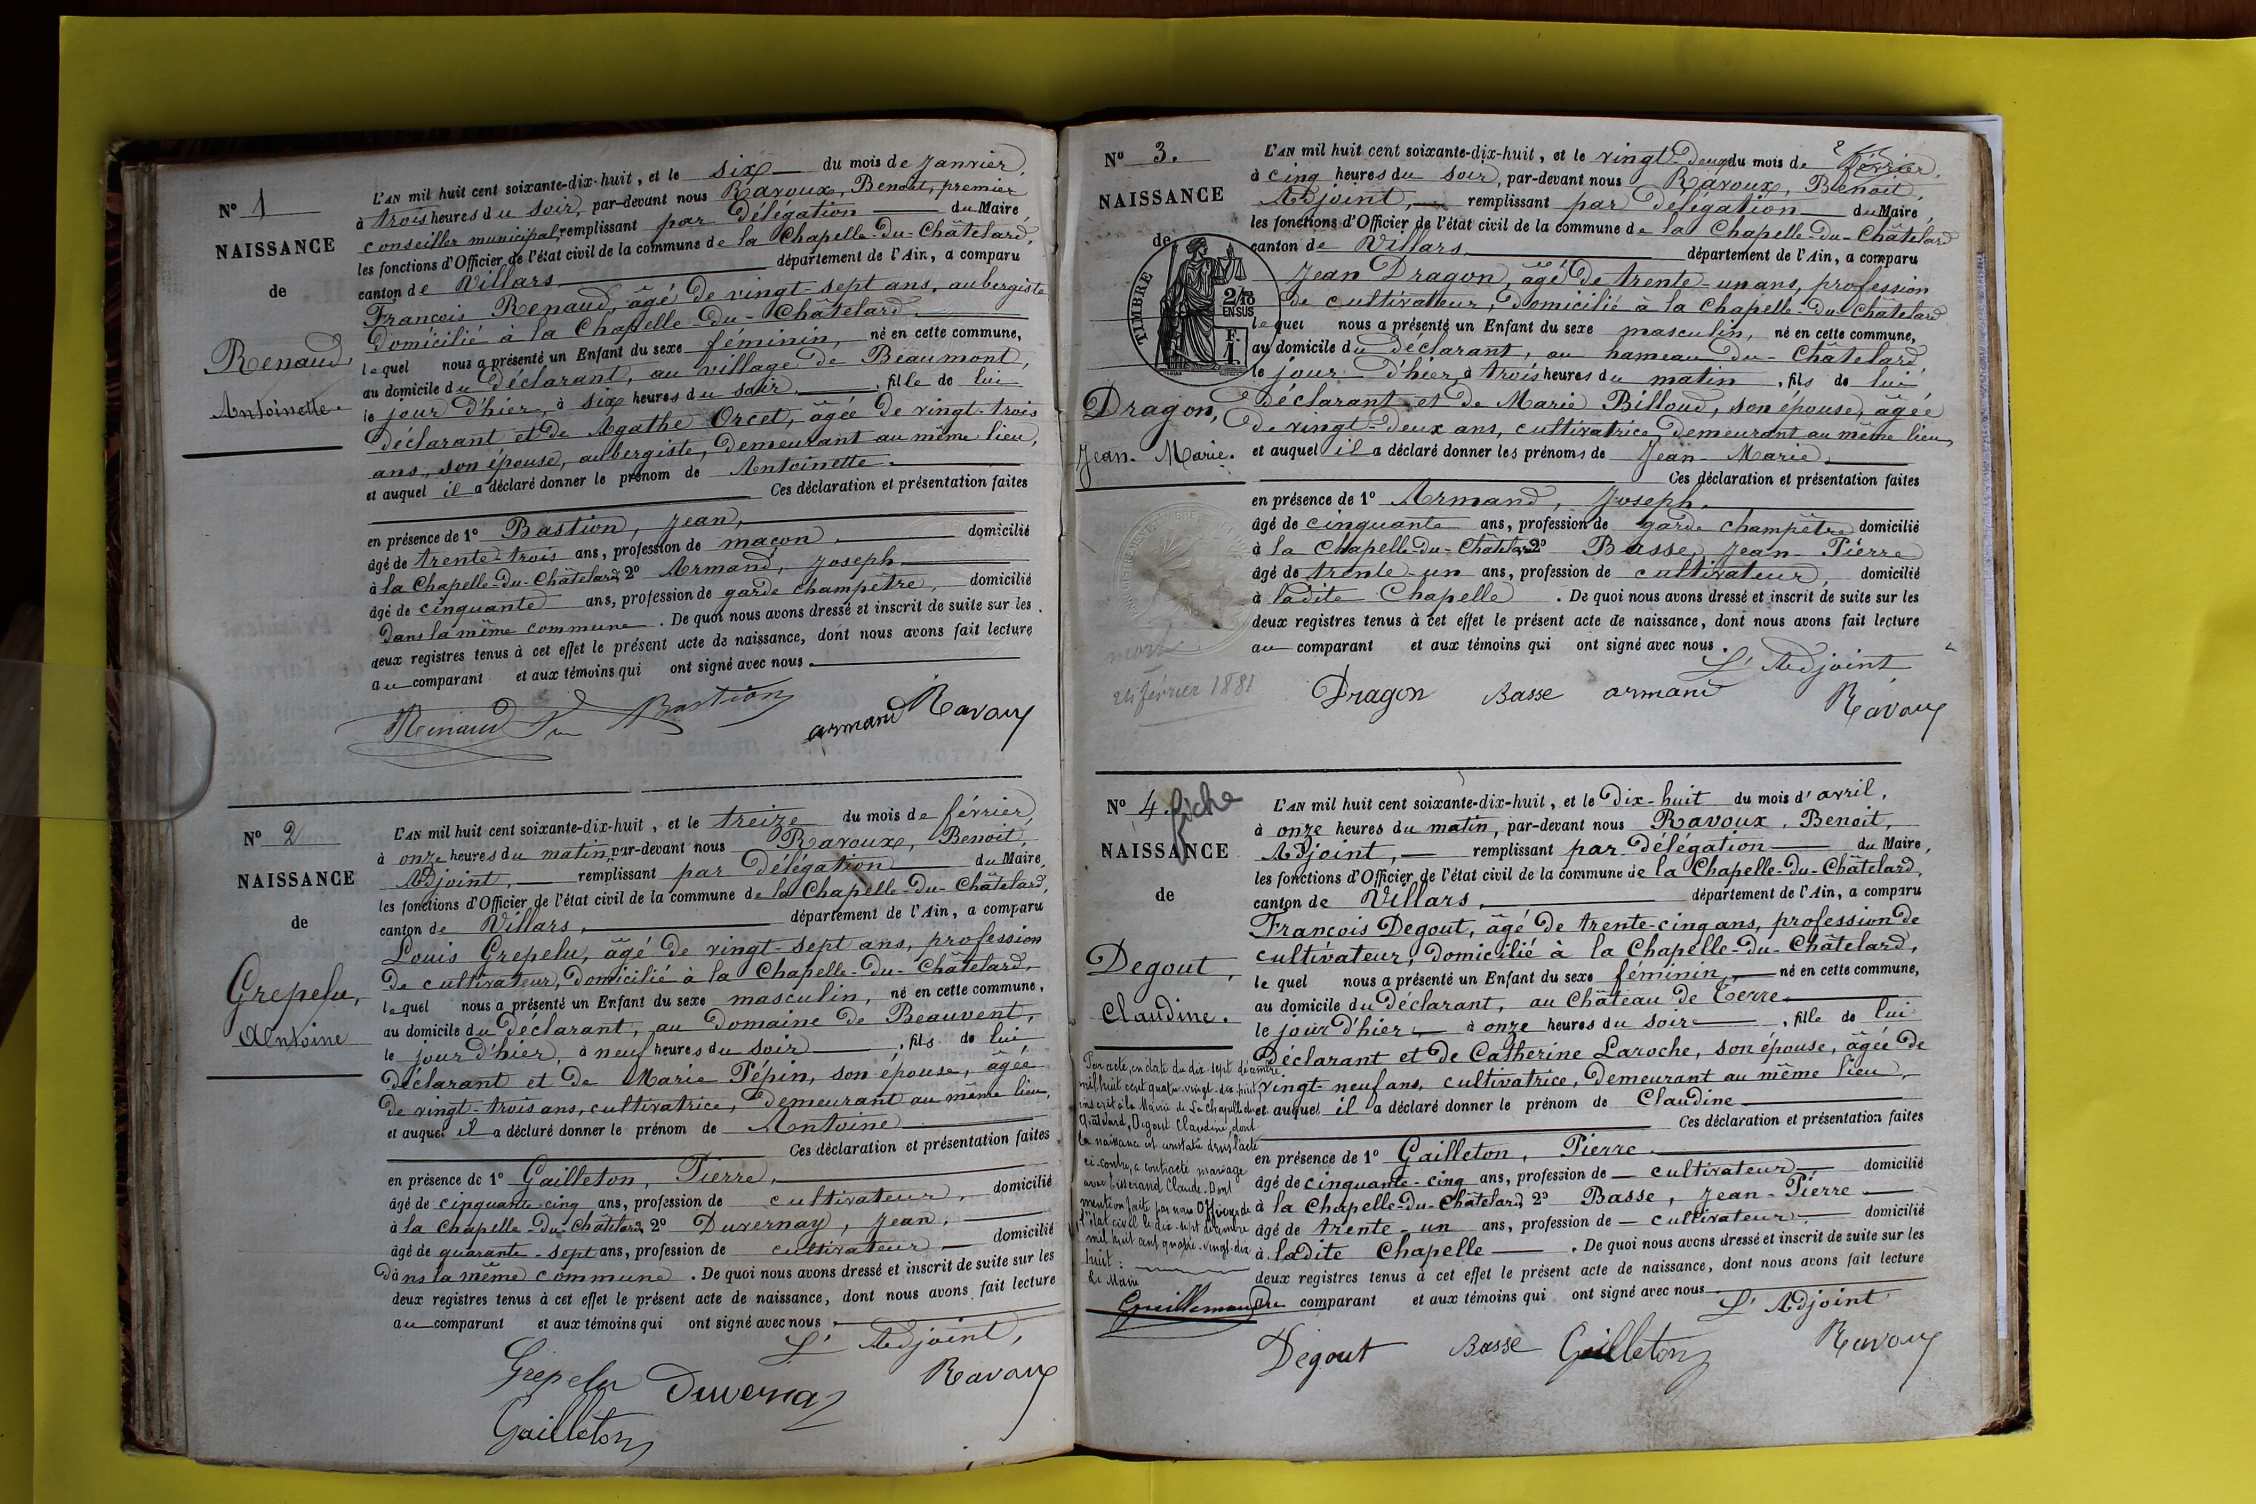 N° 1
NAISSANCE
de
Renaud,
Antoinette.
L'AN mil huit cent soixante-dix-huit, et le six du mois de Janvier,
à trois heures du soir, par-devant nous Ravoux, Benoît, premier
conseiller municipal, remplissant par délégation du Maire,
les fonctions d'Officier de l'état civil de la commune de la Chapelle-du-Châtelard,
canton de Villars département de l'Ain, a comparu
François Renaud, âgé de vingt-sept ans, aubergiste
domicilié à la Chapelle-du-Châtelard.
lequel nous a présenté un Enfant du sexe féminin, né en cette commune,
au domicile du déclarant, au village de Beaumont,
le jour d'hier, à six heures du soir, fille de lui
déclarant et de Agathe Orcet, âgée de vingt-trois
ans, son épouse, aubergiste, demeurant au même lieu,
et auquel il a déclaré donner le prénom de Antoinette.
Ces déclaration et présentation faites
en présence de 1° Bastion, Jean,
âgé de trente-trois ans, profession de maçon. domicilié
à la Chapelle-du-Châtelard, 2° Armand, Joseph
âgé de cinquante ans, profession de garde champêtre, domicilié
dans la même commune. De quoi nous avons dressé et inscrit de suite sur les
deux registres tenus à cet effet le présent acte de naissance, dont nous avons fait lecture
au comparant et aux témoins qui ont signé avec nous.
Renaud Bastion armand Ravoux
N° 2
NAISSANCE
de
Grepelu,
Antoine
L'AN mil huit cent soixante-dix-huit, et le treize du mois de février,
à onze heures du matin, par-devant nous Ravoux, Benoît,
Adjoint, remplissant par délégation du Maire,
les fonctions d'Officier de l'état civil de la commune de la Chapelle-du-Châtelard,
canton de Villars, département de l'Ain, a comparu
Louis Grepelu, âgé de vingt-sept ans, profession
de cultivateur, domicilié à la Chapelle-du-Châtelard,
lequel nous a présenté un Enfant du sexe masculin, né en cette commune,
au domicile du déclarant, au domaine de Beauvent,
le jour d'hier, à neuf heures du soir, fils de lui
déclarant et de Marie Pépin, son épouse, âgée
de vingt-trois ans, cultivatrice, demeurant au même lieu,
et auquel il a déclaré donner le prénom de Antoine
Ces déclaration et présentation faites
en présence de 1° Gailleton, Pierre,
âgé de cinquante-cinq ans, profession de cultivateur, domicilié
à la Chapelle-du-Châtelard, 2° Duvernay, Jean,
âgé de quarante-sept ans, profession de cultivateur domicilié
dans la même commune. De quoi nous avons dressé et inscrit de suite sur les
deux registres tenus à cet effet le présent acte de naissance, dont nous avons fait lecture
au comparant et aux témoins qui ont signé avec nous.
L'Adjoint,
Grepelu Duvernay Ravoux
Gailleton
N° 3.
NAISSANCE
de
TIMBRE
2/10
EN SUS
F.
1.
Dragon,
Jean-Marie.
mort
24 février 1881
L'AN mil huit cent soixante-dix-huit, et le vingt-deux du mois de février,
à cinq heures du soir, par-devant nous Ravoux, Benoît,
Adjoint, remplissant par délégation du Maire,
les fonctions d'Officier de l'état civil de la commune de la Chapelle-du-Châtelard
canton de Villars département de l'Ain, a comparu
Jean Dragon, âgé de trente-un ans, profession
de cultivateur, domicilié à la Chapelle-du-Châtelard
lequel nous a présenté un Enfant du sexe masculin, né en cette commune,
au domicile du déclarant, au hameau du Châtelard,
le jour d'hier, à trois heures du matin, fils de lui
déclarant et de Marie Billoud, son épouse, âgée
de vingt-deux ans, cultivatrice, demeurant au même lieu,
et auquel il a déclaré donner les prénoms de Jean-Marie,
Ces déclaration et présentation faites
en présence de 1° Armand, Joseph.
âgé de cinquante ans, profession de garde champêtre domicilié
à la Chapelle-du-Châtelard 2° Basse, Jean-Pierre
âgé de trente-un ans, profession de cultivateur, domicilié
à ladite Chapelle. De quoi nous avons dressé et inscrit de suite sur les
deux registres tenus à cet effet le présent acte de naissance, dont nous avons fait lecture
au comparant et aux témoins qui ont signé avec nous.
L'Adjoint
Dragon Basse armand Ravoux
N° 4 fiche
NAISSANCE
de
Degout,
Claudine.
Par acte, en date du dix sept décembre
mil huit cent quatre-vingt-dix-huit
inscrit à la Mairie de La Chapelle du
Châtelard, Degout Claudine, dont
la naissance est constatée dans l'acte
ci-contre, a contracté mariage
avec Tisserand Claude. Dont
mention faite par nous Officier de
l'état civil le dix-sept décembre
mil huit cent quatre-vingt-dix
huit:
Le Maire
Guillemaud
L'AN mil huit cent soixante-dix-huit, et le dix-huit du mois d'avril,
à onze heures du matin, par-devant nous Ravoux, Benoît,
Adjoint, remplissant par délégation du Maire,
les fonctions d'Officier de l'état civil de la commune de la Chapelle-du-Châtelard,
canton de Villars, département de l'Ain, a comparu
François Degout, âgé de trente-cinq ans, profession de
cultivateur, domicilié à la Chapelle-du-Châtelard,
lequel nous a présenté un Enfant du sexe féminin, né en cette commune,
au domicile du déclarant, au Château de Terre.
le jour d'hier, à onze heures du soir, fille de lui
déclarant et de Catherine Laroche, son épouse, âgée de
vingt-neuf ans, cultivatrice, demeurant au même lieu,
et auquel il a déclaré donner le prénom de Claudine
Ces déclaration et présentation faites
en présence de 1° Gailleton, Pierre
âgé de cinquante-cinq ans, profession de cultivateur domicilié
à la Chapelle-du-Châtelard, 2° Basse, Jean-Pierre
âgé de trente-un ans, profession de cultivateur, domicilié
à ladite Chapelle. De quoi nous avons dressé et inscrit de suite sur les
deux registres tenus à cet effet le présent acte de naissance, dont nous avons fait lecture
au comparant et aux témoins qui ont signé avec nous
L'Adjoint
Degout Basse Gailleton Ravoux